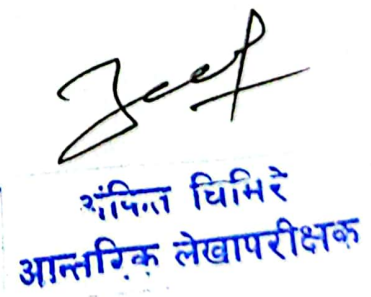 घिमिरे
आन्तरिक लेखापरीक्षक